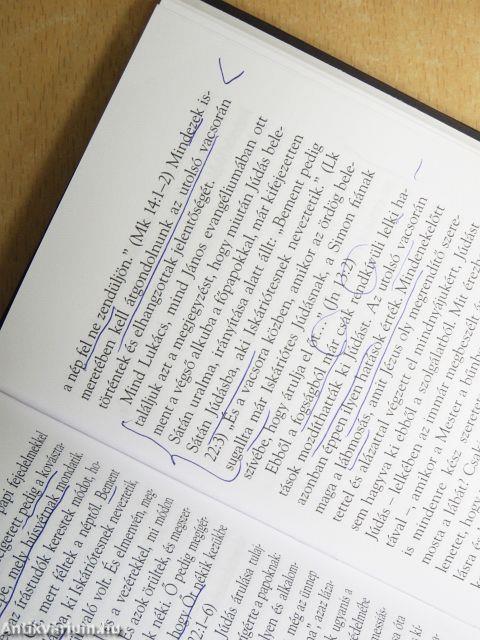 a nép fel ne zendüljön.” (Mk 14:1–2) Mindezek is-
meretében kell átgondolnunk az utolsó vacsorán
történtek és elhangzottak jelentőségét.
Mind Lukács, mind János evangéliumában ott
találjuk azt a megjegyzést, hogy miután Júdás bele-
ment a végső alkuba a főpapokkal már kifejezetten
Sátán uralma, irányítása alatt állt: „Bement pedig
Sátán Júdásba, aki Iskáriótesnek neveztetik.” (Lk
22:3) „És a vacsora közben, amikor az ördög bele-
sugallta már Iskáriótes Júdásnak, a Simon fiának
szívébe, hogy árulja el őt...” (Jn
Ebből a dologból már csak rendkívüli lelki ha-
tások mozdíthatták ki Júdást. Az utolsó vacsorán
azonban éppen ilyen hatások érték. Mindenekelőtt
maga a lábmosás, amit Jézus oly megrendítő szere-
tettel és alázattal végzett el mindnyájukért. Júdást
sem hagyva ki ebből a szolgálatból. Mit érez
Júdás – lelkében az immár megbeszél
tával –, amikor a Mester a bűnb
is mindenre kész szeretet
mosta a lábát! Csak
lenetet, hogy
lásra é
papi fejedelmekkel
getett pedig a kovászta-
e, mely húsvétnak mondatik.
z írástudók kerestek módot, ho-
mert féltek a néptől. Bement
ki Iskáriótesnek neveztetik,
való volt. És elmenvén, meg-
s a vezérekkel, mi módon
s azok örültek és megszer-
néki. Ő pedig megígér-
hogy Őt nékik kezükbe
2:1–6)
Júdás árulása tulaj-
ígérte a papoknak:
en és alkalom-
még az ünnep
Antikvárium.hu